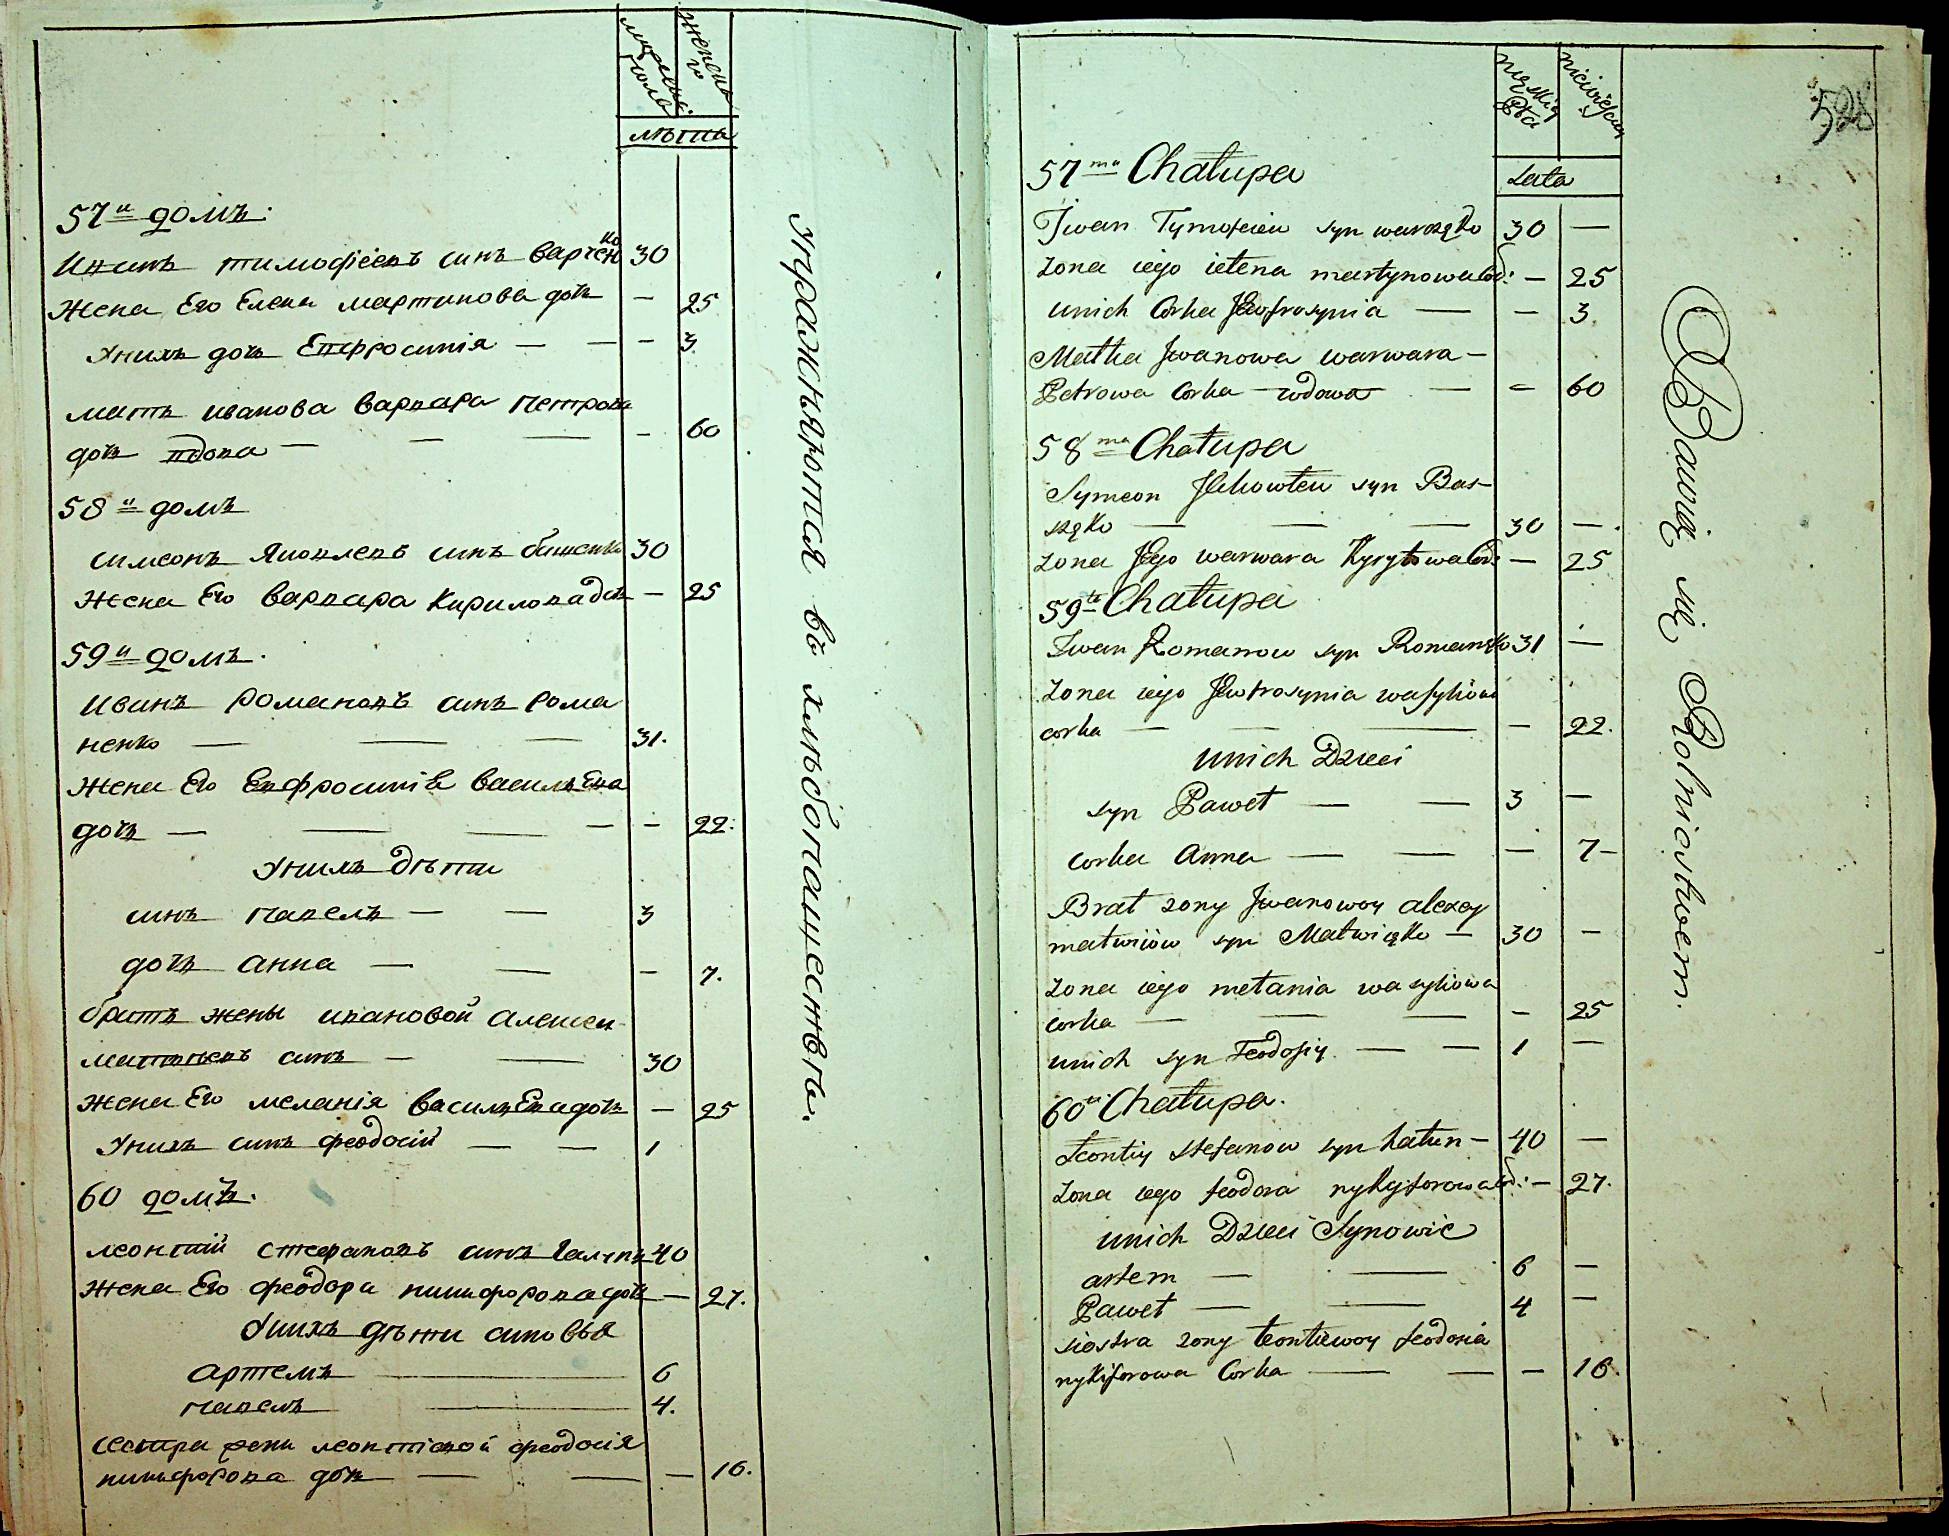 женск
лѣты
57й домъ.
Иванъ тимофеевъ синъ варченко 30
Жена Его Елена мартинова дочь — 25
Унихъ дочь Евфросинія — — — 3
мать иванова варвара петрова
дочь вдова — — — — 60
58й домъ
симеонъ Яковлевъ синъ башенко 30
Жена Его варвара Кирилова дочь — 25
59й домъ.
Иванъ романовъ синъ рома
ненко — — — 31.
Жена Его Евфросинія васильева
дочь — — — — — 22.
Унихъ дѣти
синъ павелъ — — 3
дочь анна — — — 7.
братъ жены ивановой алексей
матвѣевъ синъ — — 30
Жена Его меланія васильева дочь — 25
Унихъ синъ феодосій — — 1
60 домъ.
леонтій стефановъ синъ 40
Жена Его феодора никифорова дочь — 27.
Унихъ дѣти синовья
артемъ — 6
павелъ — 4.
сестра жени леонтіевой феодосія
никифорова дочь — — — 16.
упражняются въ хлѣбопашествѣ.
528
męskiey Płci
Lata
57ma Chałupa
Jwan Tymofeiew syn warszęko 30 —
żona iego ielena martynowa Cor: — 25
unich Corka Jewfrosynia — — 3
Matka Jwanowa warwara —
Petrowa Corka wdowa — — 60
58ma Chałupa
Symeon Jakowlew syn Bas-
szęko — — — 30 —
żona Jego warwara Kyryłowa Cor: — 25
59ta Chałupa
Iwan Romanow syn Romanęko 31 —
żona iego Jewfrosynia wasylowa
corka — — — — 22.
unich Dzieci
syn Paweł — — 3 —
corka Anna — — — 7 —
Brat żony Jwanowoy alexey
matwiiow syn Matwięko — 30 —
żona iego mełania wasylowa
corka — — — — 25
unich syn Feodosiy — — 1 —
60ta Chałupa.
Leontiy stefanow syn hałun — 40 —
żona iego feodora nykyforowa Cor: — 27.
unich Dzieci Synowie
artem — — 6 —
Paweł — — 4 —
siostra żony leontiewoy feodosia
nykiforowa Corka — — — 16
Bawią się Rolnictwem.